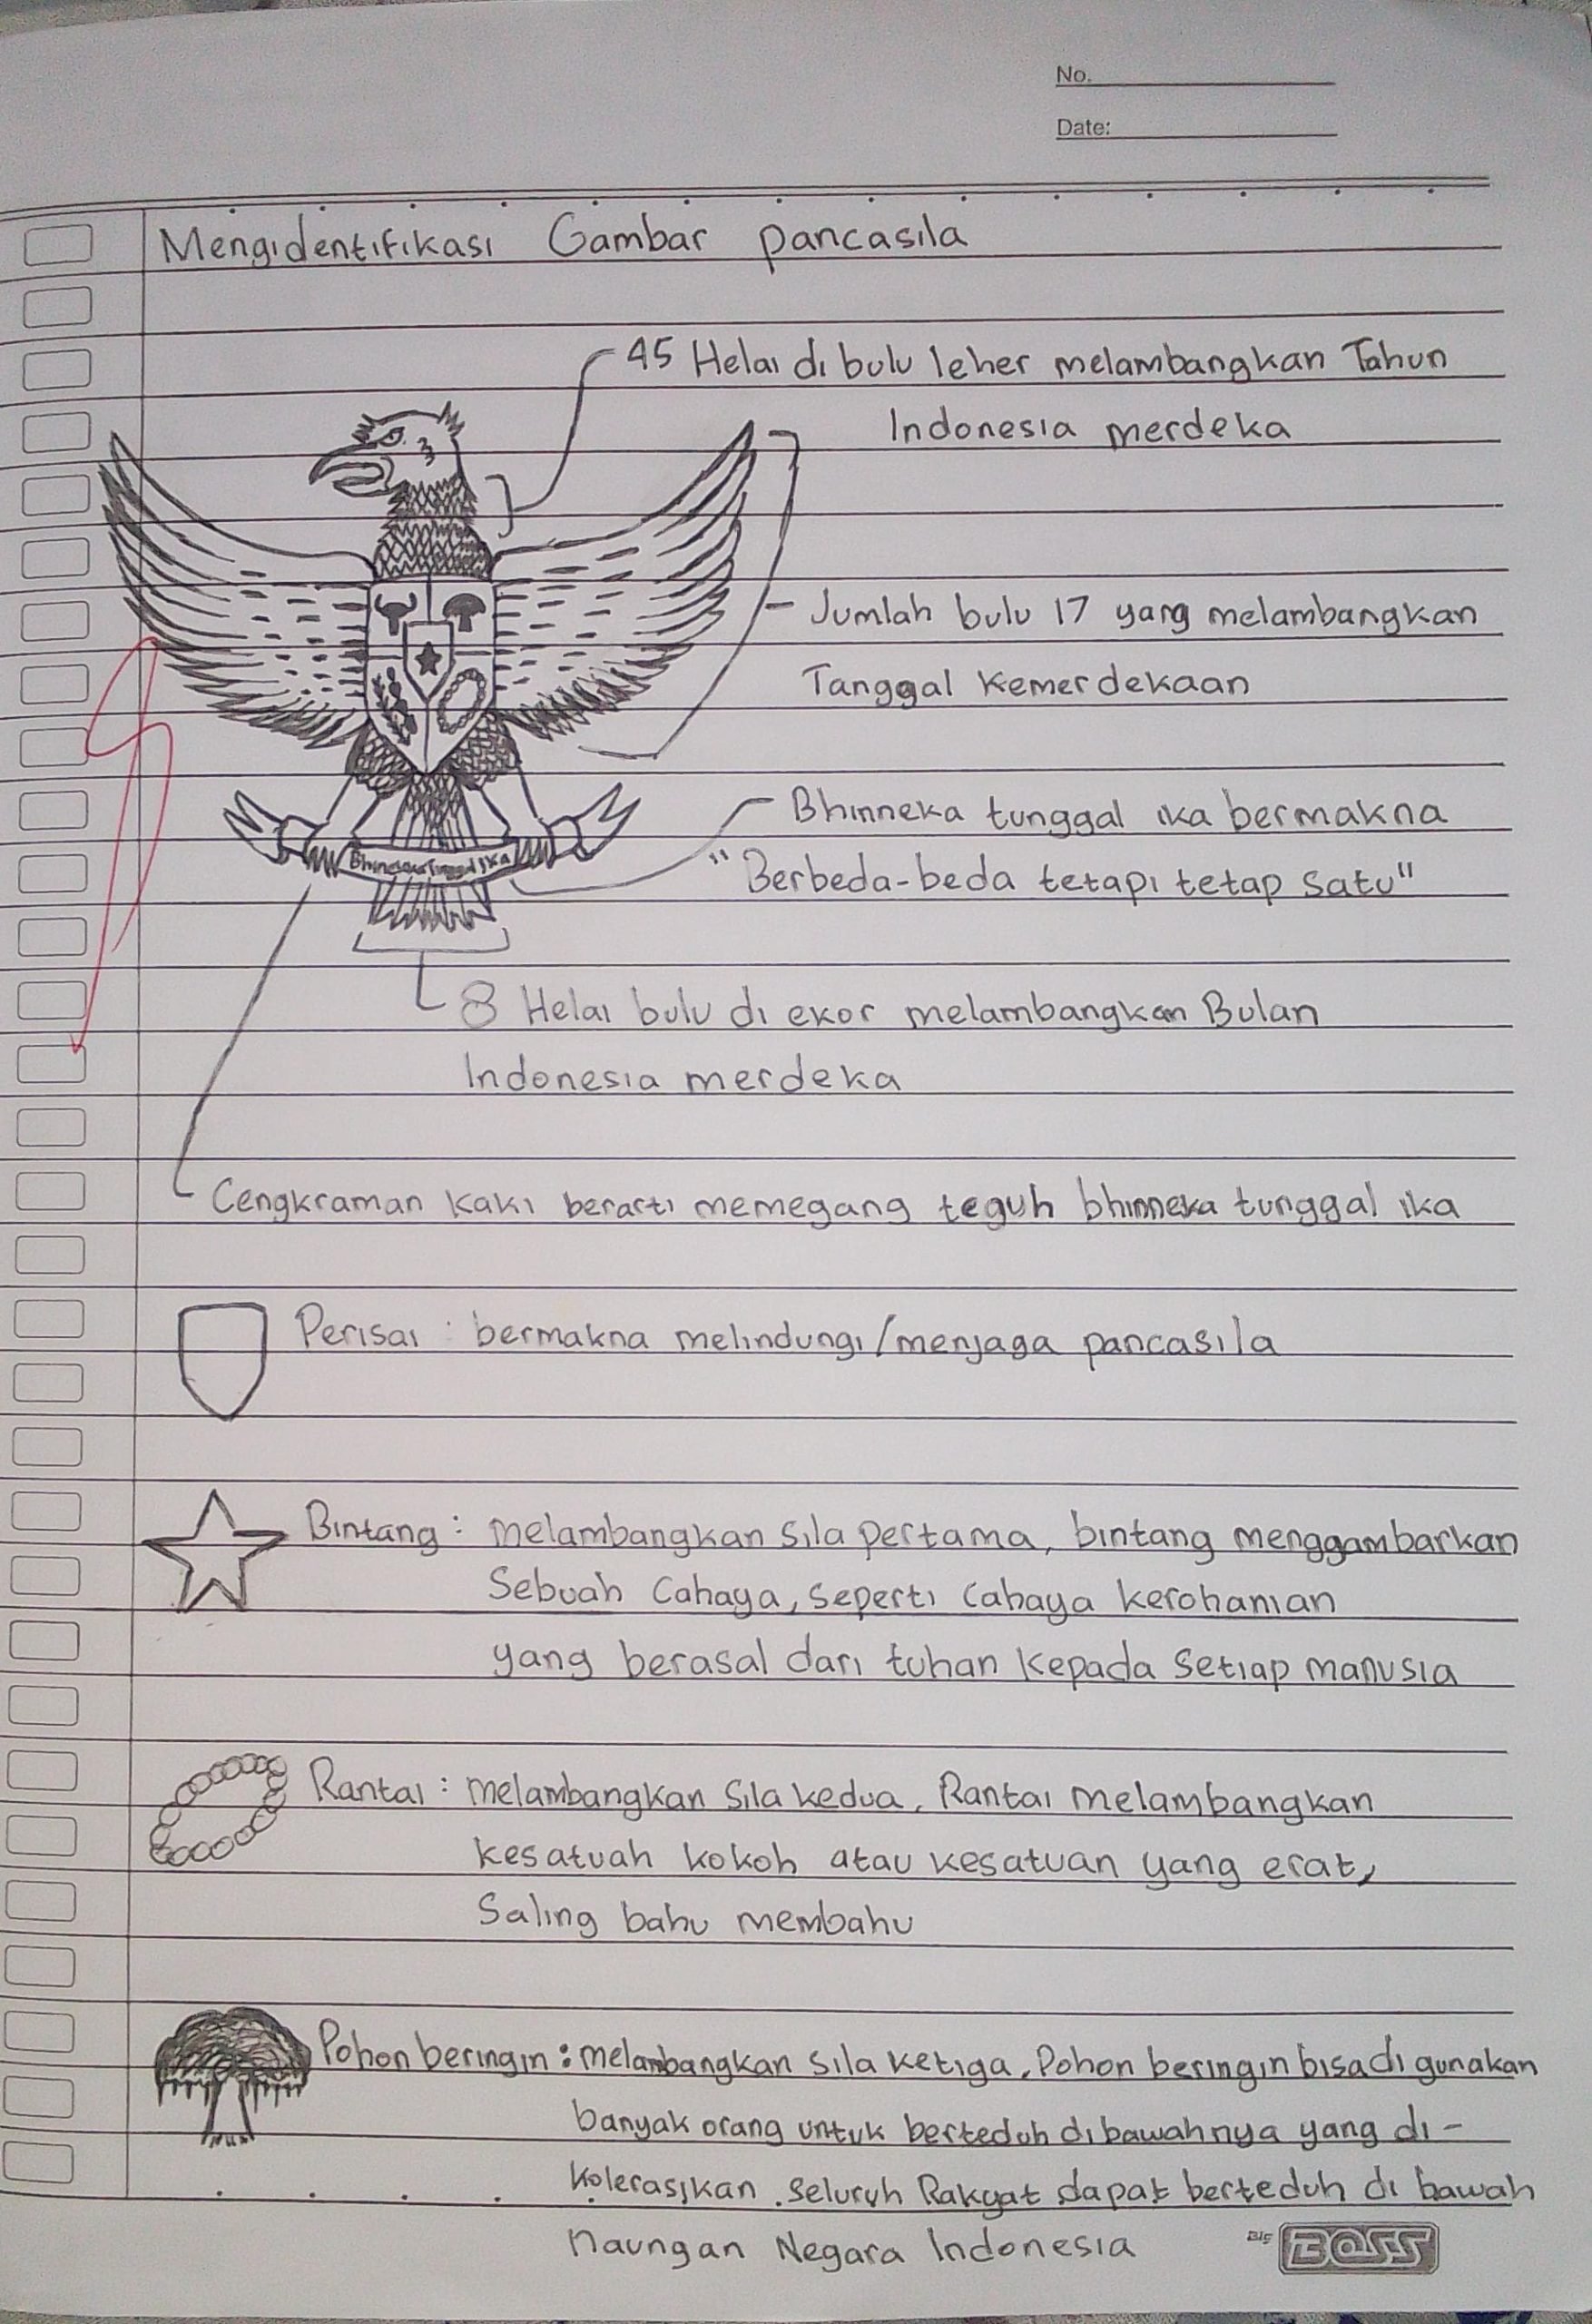 No.
Date:
Mengidentifikasi Gambar pancasila
45 Helai di bulu leher melambangkan Tahun
Indonesia merdeka
Jumlah bulu 17 yang melambangkan
Tanggal Kemerdekaan
Bhinneka tunggal ika bermakna
"Berbeda-beda tetapi tetap satu"
8 Helai bulu di ekor melambangkan Bulan
Indonesia merdeka
Cengkraman kaki berarti memegang teguh bhinneka tunggal ika
Perisai : bermakna melindungi/menjaga pancasila
Bintang : melambangkan sila pertama, bintang menggambarkan
Sebuah Cahaya, seperti Cahaya kerohanian
yang berasal dari tuhan kepada setiap manusia
Rantai : melambangkan sila kedua, Rantai melambangkan
kesatuah kokoh atau kesatuan yang erat,
Saling bahu membahu
Pohon beringin : melambangkan sila ketiga. Pohon beringin bisa di gunakan
banyak orang untuk berteduh dibawahnya yang di-
kolerasikan . seluruh Rakyat dapat berteduh di bawah
naungan Negara Indonesia
BIG BOSS